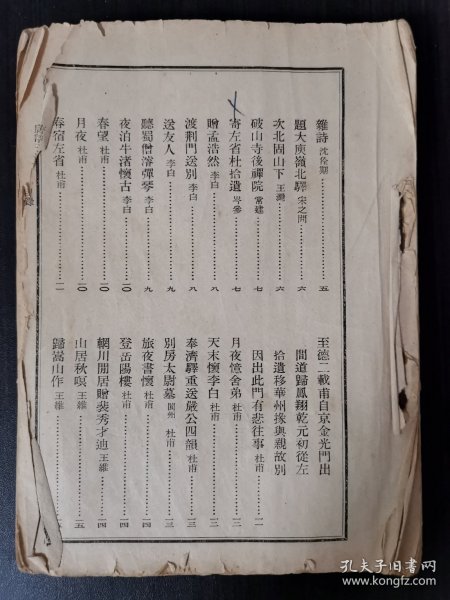 雜詩 沈佺期 五
題大庾嶺北驛 宋之問 六
次北固山下 王灣 六
破山寺後禪院 常建 七
寄左省杜拾遺 岑參 七
贈孟浩然 李白 八
渡荆門送別 李白 八
送友人 李白 九
聽蜀僧濬彈琴 李白 九
夜泊牛渚懷古 李白 一〇
春望 杜甫 一〇
月夜 杜甫 一〇
春宿左省 杜甫 一一
至德二載甫自京金光門出
間道歸鳳翔乾元初從左
拾遺移華州掾與親故別
因出此門有悲往事 杜甫 一一
月夜憶舍弟 杜甫 一二
天末懷李白 杜甫 一二
奉濟驛重送嚴公四韻 杜甫 一三
別房太尉墓 閬州 杜甫 一三
旅夜書懷 杜甫 一四
登岳陽樓 杜甫 一四
輞川閒居贈裴秀才迪 王維 一四
山居秋暝 王維 一五
歸嵩山作 王維
孔夫子旧书网
www.kongfz.com